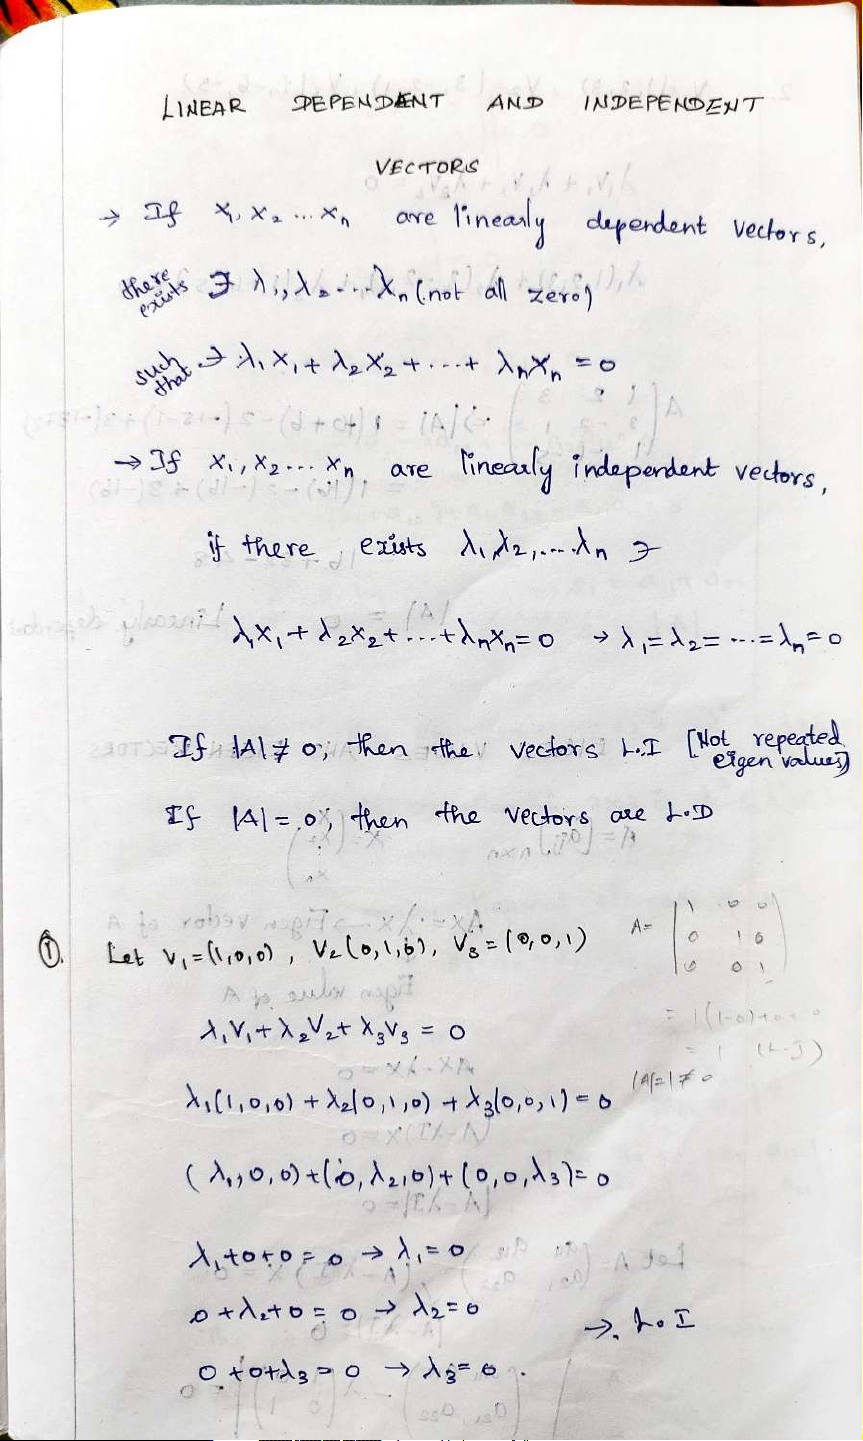 LINEAR DEPENDENT AND INDEPENDENT
VECTORS
→ If x₁, x₂ ... xₙ are linearly dependent vectors,
there exists ∃ λ₁, λ₂ .... λₙ (not all zero)
such that ∋ λ₁x₁ + λ₂x₂ + ... + λₙxₙ = 0
→ If x₁, x₂ ... xₙ are linearly independent vectors,
if there exists λ₁, λ₂, .... λₙ ∋
λ₁x₁ + λ₂x₂ + ... + λₙxₙ = 0 → λ₁ = λ₂ = ... = λₙ = 0
If |A| ≠ 0, then the vectors L.I [Not repeated eigen values]
If |A| = 0, then the vectors are L.D
①. Let V₁ = (1,0,0), V₂ (0,1,0), V₃ = (0,0,1)
λ₁V₁ + λ₂V₂ + λ₃V₃ = 0
λ₁(1,0,0) + λ₂(0,1,0) + λ₃(0,0,1) = 0
(λ₁,0,0) + (0,λ₂,0) + (0,0,λ₃) = 0
λ₁+0+0 = 0 → λ₁ = 0
0+λ₂+0 = 0 → λ₂ = 0
→. L.I
0+0+λ₃ = 0 → λ₃ = 0.
A= | 1 0 0
0 1 0
0 0 1 |
= 1(1-0)+0+0
= 1 (L.I)
|A|=1≠0